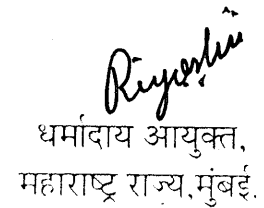 धर्मादाय आयुक्त,
महाराष्ट्र राज्य,मुंबई.